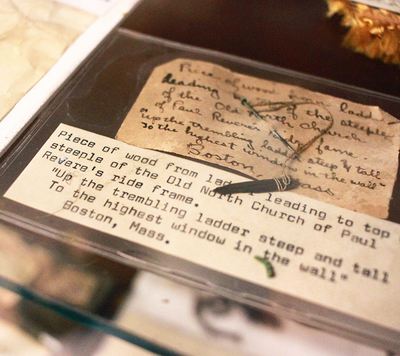 Piece of wood from lad
leading to top of the steeple
of the Old North Church
of Paul Revere's ride frame.
"Up the trembling ladder steep & tall
To the highest window in the wall"
Boston Mass.
Piece of wood from lad leading to top
steeple of the Old North Church of Paul
Revere's ride frame.
"Up the trembling ladder steep and tall
To the highest window in the wall"
Boston, Mass.